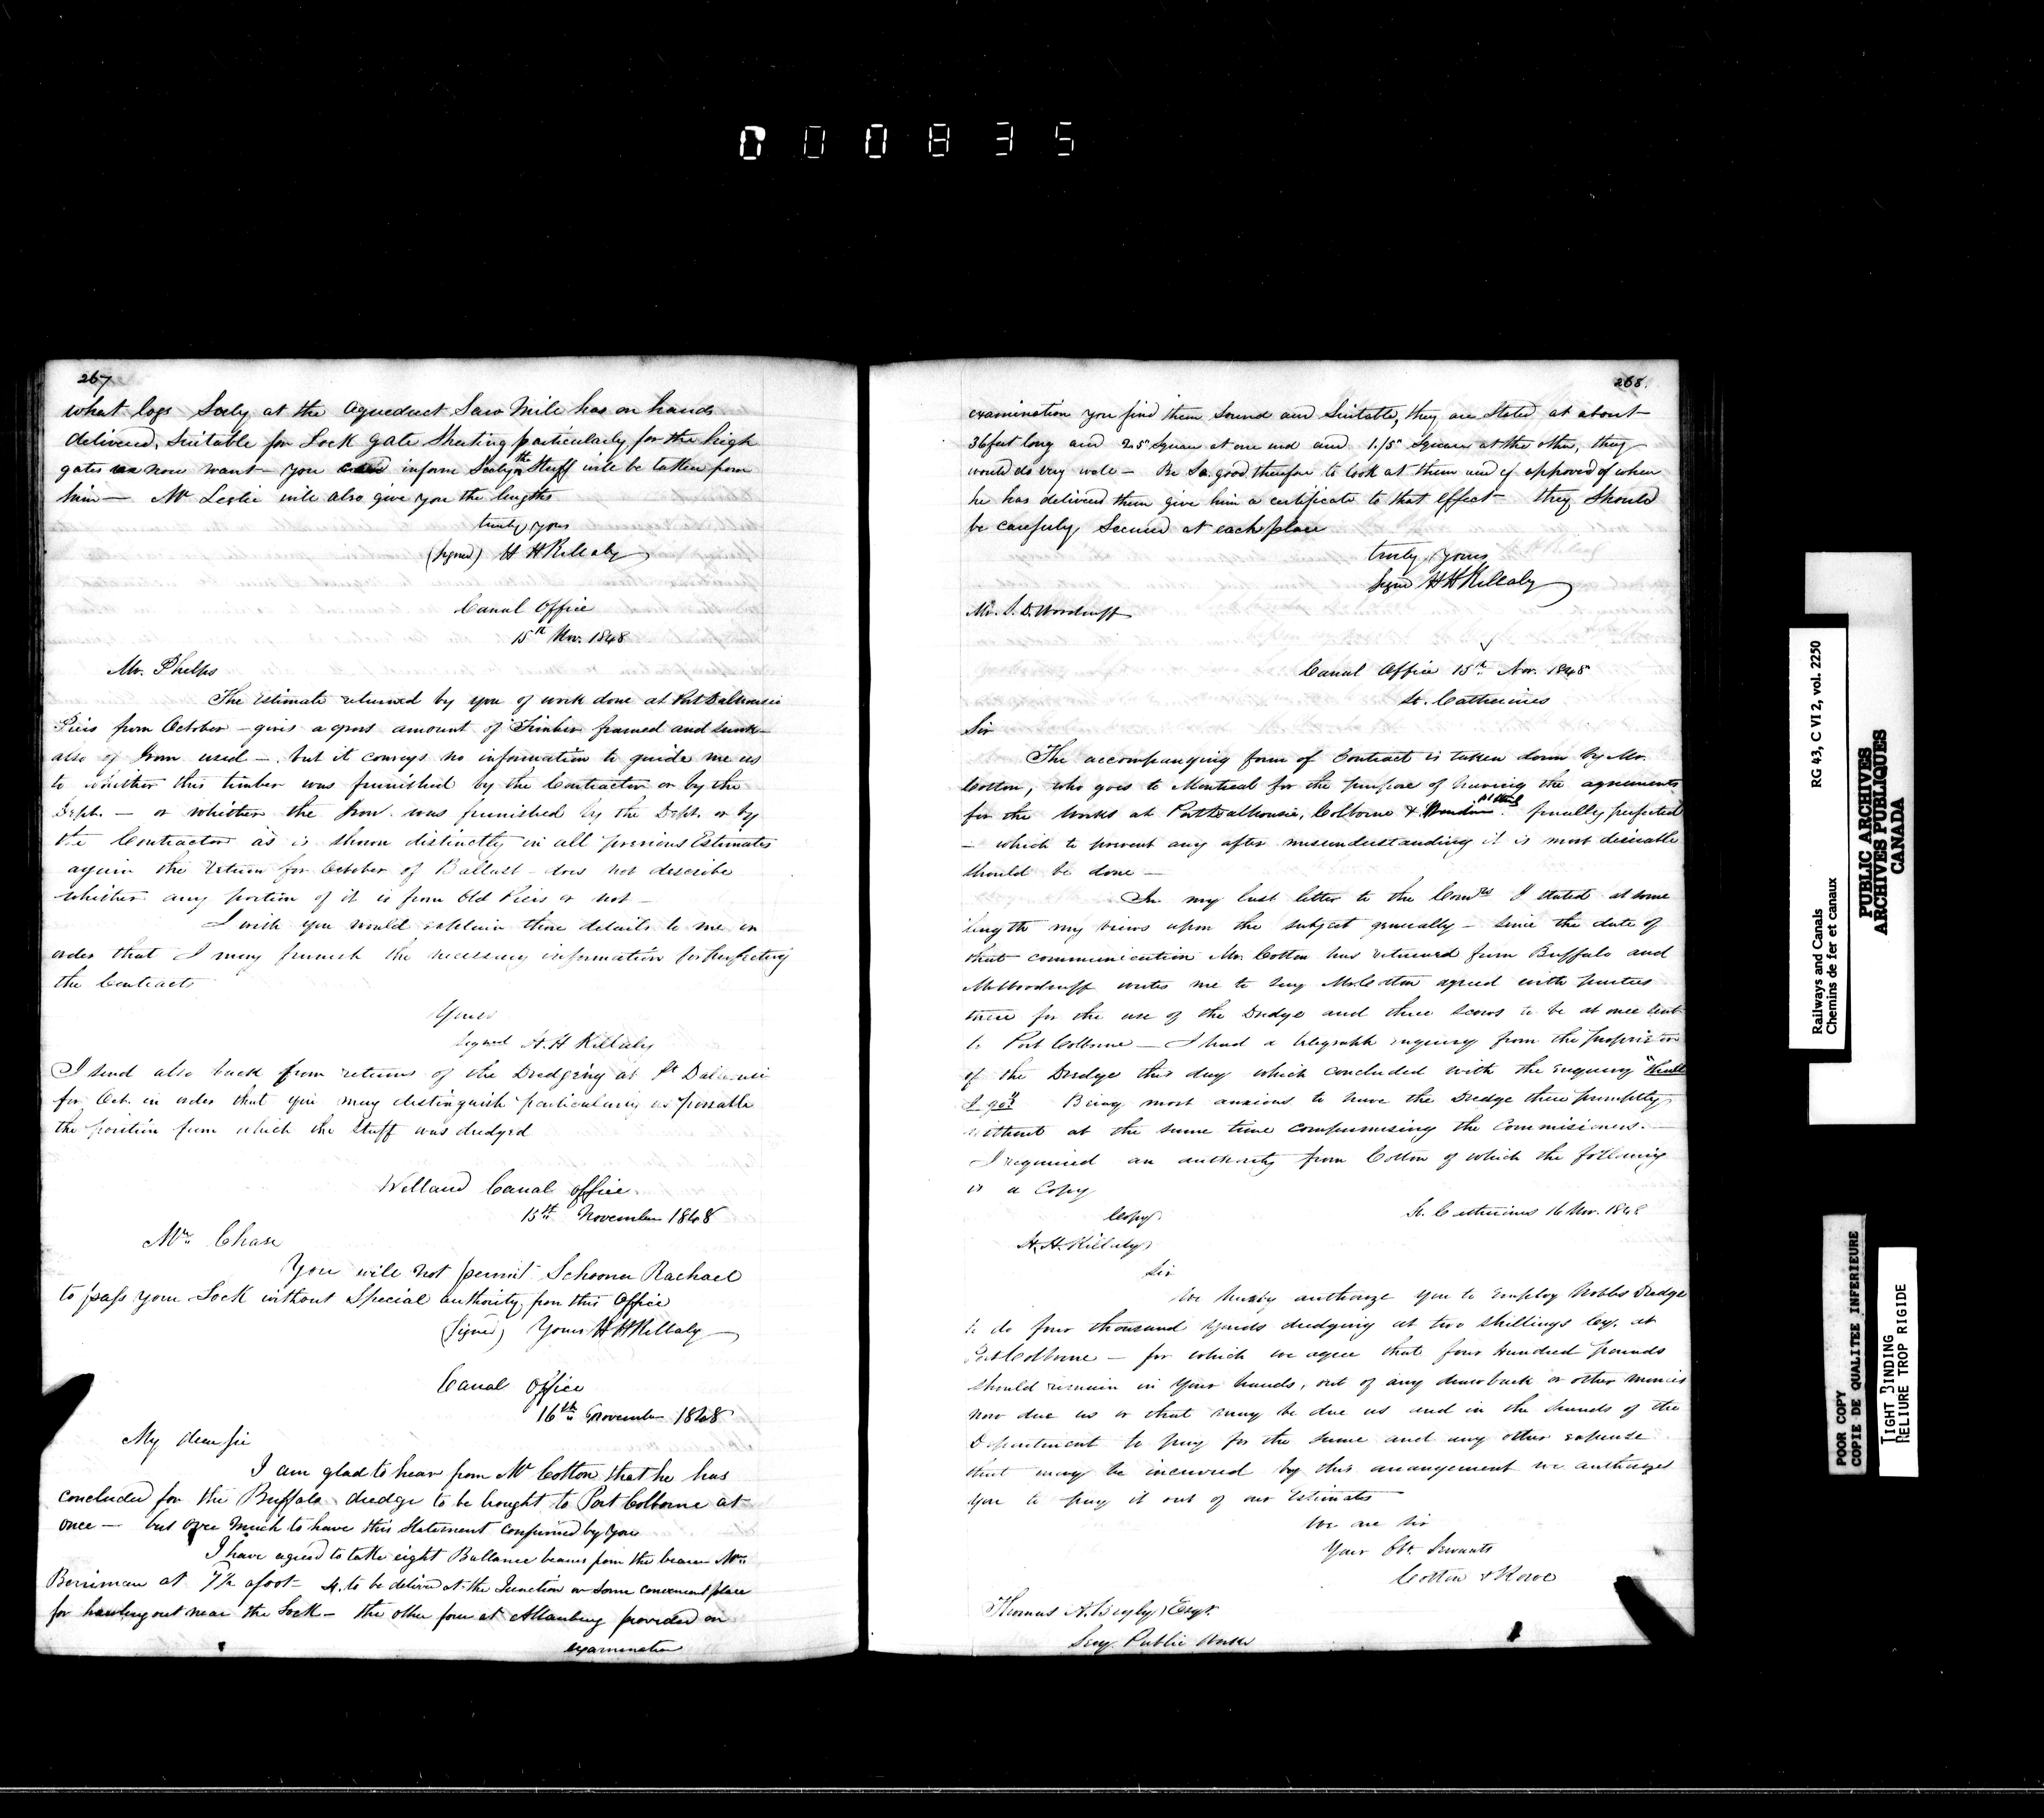 000835
267
what logs Seely at the Aqueduct Saw Mill has on hand
delivered, suitable for Lock gate Sheeting particularly for the high
gates now want – you inform Seely the Stuff will be taken from
him – Mr Leslie will also give you the lengths
truly yours
(Signed) H H Killaly
Canal Office
15th Nov. 1848
Mr. Phelps
The Estimate returned by you of work done at Port Dalhousie
Piers from October – gives a gross amount of Timber framed and sunk –
also of Iron used – but it conveys no information to guide me as
to whether this timber was furnished by the Contractor or by the
Dept. – or whether the Iron was furnished by the Dept. or by
the Contractor as is shown distinctly in all previous Estimates
again the return for October of Ballast – does not describe
whether any portion of it is from Old Piers or not –
I wish you would explain these details to me in
order that I may furnish the necessary information for perfecting
the Contract
Yours
Signed H. H Killaly
I send also back from returns of the Dredging at Pt Dalhousie
for Oct. in order that you may distinguish particularly as possible
the position from which the Stuff was dredged
Welland Canal Office
15th November 1848
Mr. Chase
You will not permit Schooner Rachael
to pass your Lock without Special authority from this Office
(Signed) Yours H H Killaly
Canal Office
16th November 1848
My dear Sir
I am glad to hear from Mr Cotton that he has
concluded for the Buffalo dredge to be brought to Port Colborne at
once – but much to have this Statement confirmed by you
I have agreed to take eight Ballance beams from the bearer Mr.
Berriman at 7½ a foot – 4. to be delivered at the Junction or some convenient place
for hauling out near the Lock – the other four at Allanburg provided on
examination
268.
examination you find them Sound and Suitable, they are Stated at about
36 feet long and 25" Square at one end and 1./5" Square at the other, they
would do very well – Be So good therefore to look at them and if approved of when
he has delivered them give him a certificate to that effect – they Should
be carefully Secured at each place
truly Yours
Signed H H Killaly
Mr. S. D. Woodruff
Canal Office 15th Nov. 1848
St. Catherines
Sir
The accompanying form of Contract is taken down by Mr.
Cotton, who goes to Montreal for the purpose of having the agreements
for the works at Port Dalhousie, Colborne & finally perfected
– which to prevent any after misunderstanding it is most desirable
should be done –
In my last letter to the Comrs I stated at some
length my views upon the subject generally – since the date of
that communication Mr. Cotton has returned from Buffalo and
Mr Woodruff writes me to say Mr. Cotton agreed with parties
there for the use of the Dredge and three Scows to be at once sent
to Port Colborne – I had a telegraph enquiry from the proprietor
of the Dredge this day which concluded with the enquiry "Shall
I go?" Being most anxious to have the Dredge there promptly
without at the same time compromising the Commissioners. –
I required an authority from Cotton of which the following
is a Copy
Copy St. Catherines 16 Nov. 1848
H. H. Killaly
Sir
We hereby authorize you to employ Nobbs Dredge
to do four thousand yards dredging at two shillings Cy. at
Port Colborne – for which we agree that four Hundred pounds
should remain in your hands, out of any drawback or other monies
now due us or that may be due us and in the hands of the
Department to pay for the same and any other expense
that may be incurred by this arrangement we authorize
you to pay it out of our Estimates
We are Sir
Your Obt. Servants
Cotton & Rowe
Thomas A. Begly Esqr.
Secy. Public Works
RG 43, C VI 2, vol. 2250
Railways and Canals
Chemins de fer et canaux
PUBLIC ARCHIVES
ARCHIVES PUBLIQUES
CANADA
POOR COPY
COPIE DE QUALITEE INFERIEURE
TIGHT BINDING
RELIURE TROP RIGIDE